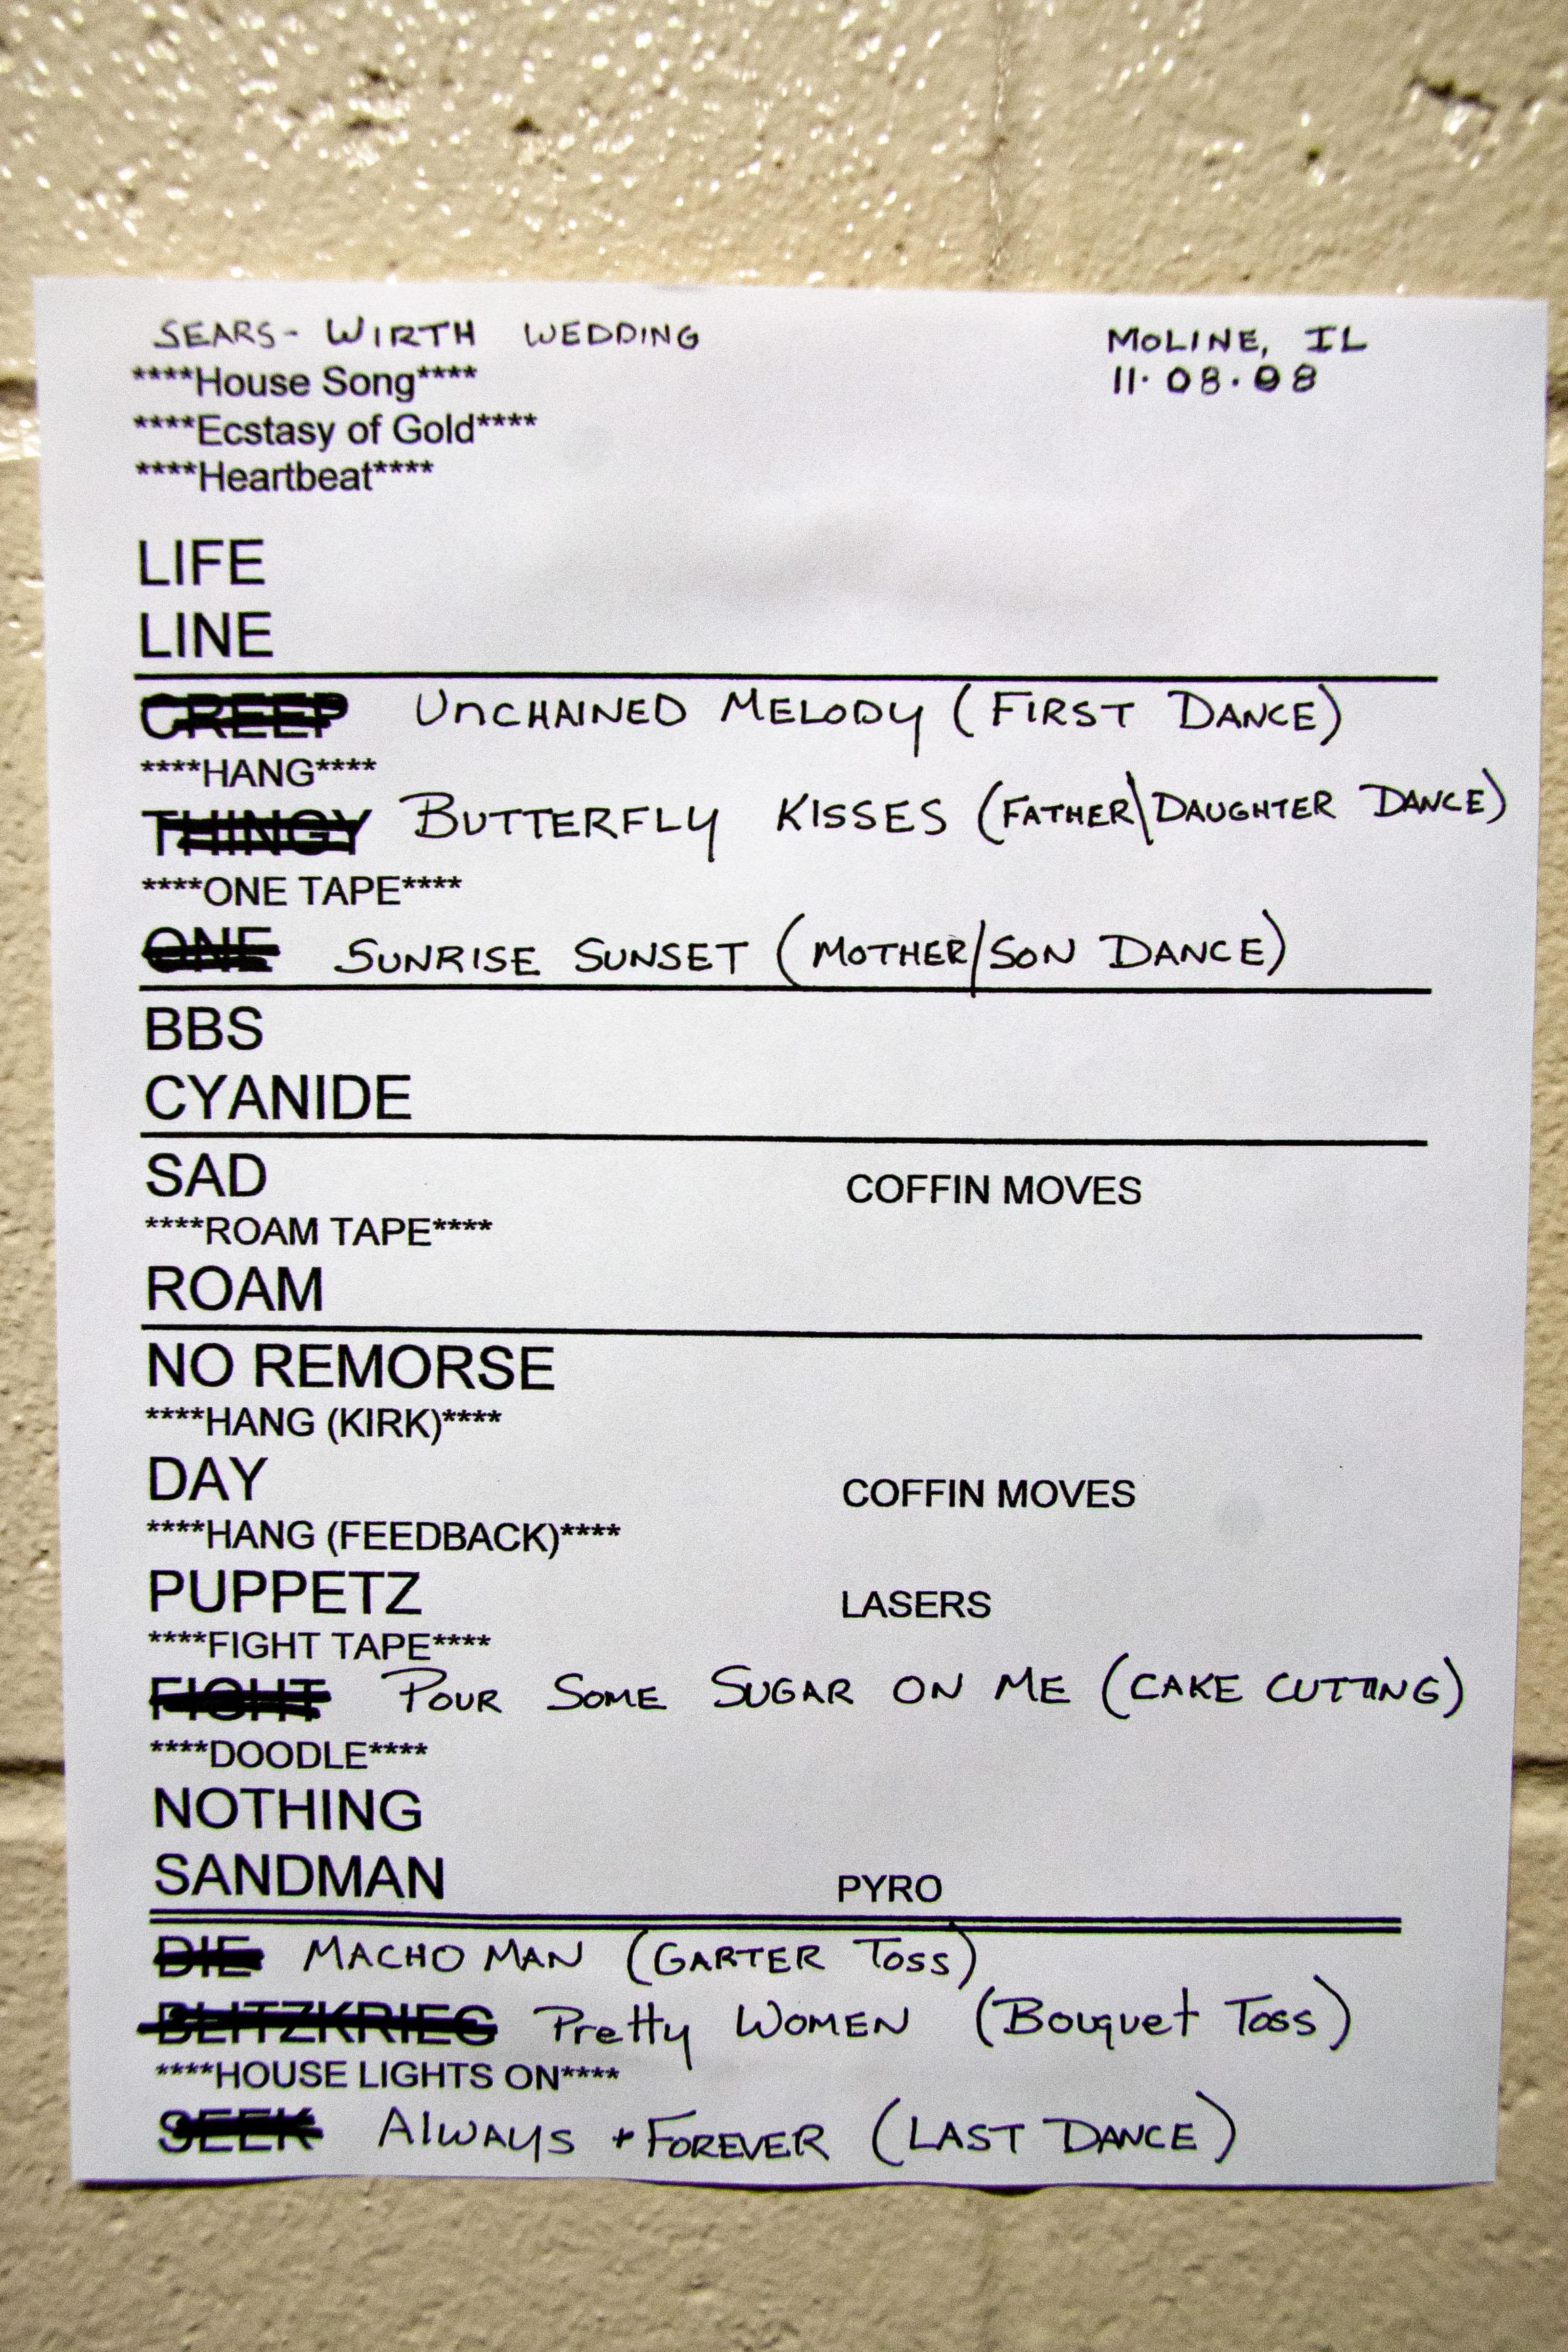 SEARS- WIRTH WEDDING MOLINE, IL
****House Song**** 11·08·08
****Ecstasy of Gold****
****Heartbeat****
LIFE
LINE
CREEP UNCHAINED MELODY (FIRST DANCE)
****HANG****
THINGY BUTTERFLY KISSES (FATHER\DAUGHTER DANCE)
****ONE TAPE****
ONE SUNRISE SUNSET (MOTHER/SON DANCE)
BBS
CYANIDE
SAD COFFIN MOVES
****ROAM TAPE****
ROAM
NO REMORSE
****HANG (KIRK)****
DAY COFFIN MOVES
****HANG (FEEDBACK)****
PUPPETZ LASERS
****FIGHT TAPE****
FIGHT POUR SOME SUGAR ON ME (CAKE CUTTING)
****DOODLE****
NOTHING
SANDMAN PYRO
DIE MACHO MAN (GARTER TOSS)
BLITZKRIEG PreTTy WOMEN (BOUQUET TOSS)
****HOUSE LIGHTS ON****
SEEK ALWAYS + FOREVER (LAST DANCE)